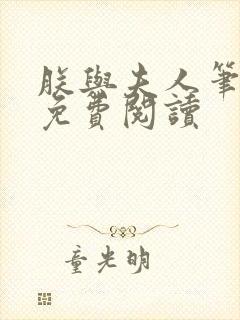 朕與夫人筆
免費閱讀
童光明